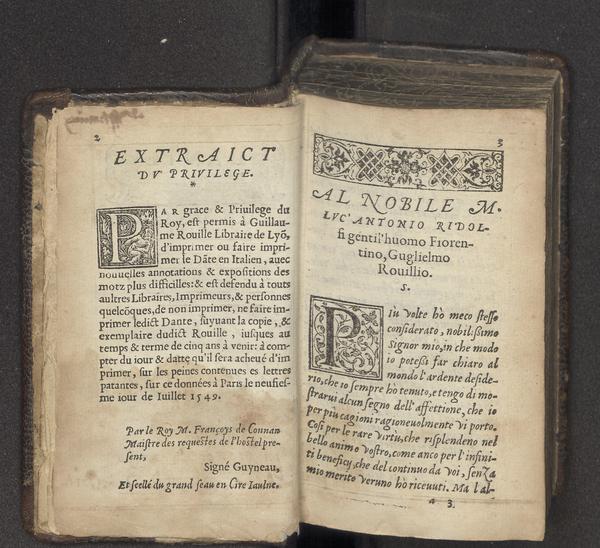 2
EXTRAICT
DV PRIVILEGE.
*
PAR grace & Priuilege du
Roy, est permis à Guillau-
me Rouille Libraire de Lyõ,
d'imprimer ou faire impri-
mer le Dãte en Italien, auec
nouuelles annotations & expositions des
motz plus difficilles: & est defendu à touts
aultres Libraires, Imprimeurs, & personnes
quelcõques, de non imprimer, ne faire im-
primer ledict Dante, suyuant la copie, &
exemplaire dudict Rouille, iusques au
temps & terme de cinq ans à venir: à com-
pter du iour & datte qu'il sera acheué d'im
primer, sur les peines contenues es lettres
patantes, sur ce données à Paris le neufies-
me iour de Iuillet 1549.
Par le Roy M. Françoys de Connan
Maistre des requestes de l'hostel pre-
sent,
Signé Guyneau,
Et seellé du grand seau en Cire Iaulne.
3
AL NOBILE M.
LVC'ANTONIO RIDOL-
fi gentil'huomo Fioren-
tino, Guglielmo
Rouillio.
S.
PIù volte hò meco stesso
considerato, nobilissimo
Signor mio, in che modo
io potessi far chiaro al
mondo l'ardente deside-
rio, che io sempre hò tenuto, e tengo di mo-
strarui alcun segno dell'affettione, che io
per più cagioni ragioneuolmente vi porto.
Cosi per le rare virtù, che risplendeno nel
bello animo vostro, come anco per l'infini-
ti beneficij, che del continuo da voi, senza
mio merito veruno hò riceuuti. Ma l'al-
a 3.